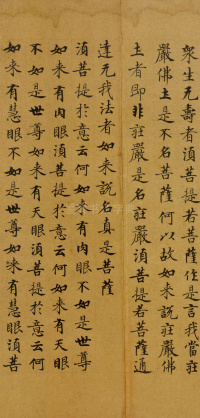 衆生无壽者須菩提若菩薩作是言我當莊
嚴佛土是不名菩薩何以故如来說莊嚴佛
土者即非莊嚴是名莊嚴須菩提若菩薩通
達无我法者如来說名真是菩薩
須菩提於意云何如来有肉眼不如是世尊
如来有肉眼須菩提於意云何如来有天眼
不如是世尊如来有天眼須菩提於意云何
如来有慧眼不如是世尊如来有慧眼須菩